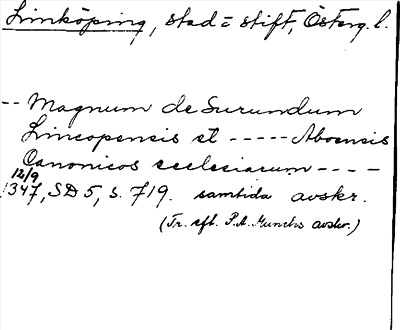 Linköping, stad = stift, Österg. l.
-- Magnum de Surundum
Lincopensis et ----- Aboensis
Canonicos ecclesiarum ----
12/9
1347, SD 5, s. 719. samtida avskr.
(Tr. eft. P.A. Munchs avskr.)